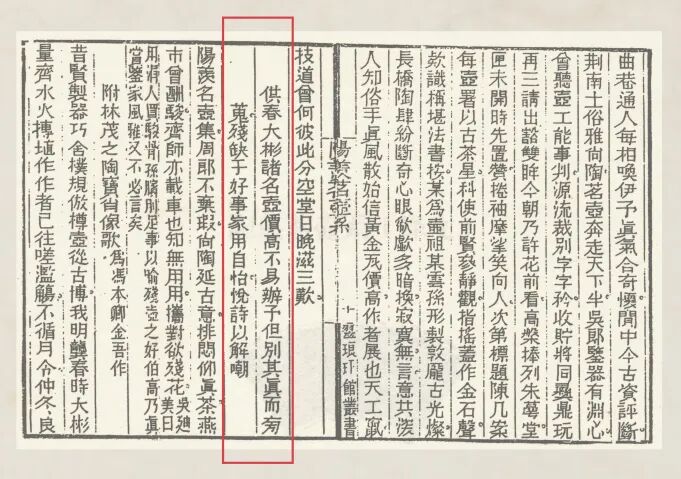 曲巷通人每相喚伊予眞氣合奇懷閒中今古資評斷
荆南土俗雅尚陶茗壺奔走天下半吳郎鑒器有淵心
曾聽壺工能事判源流裁別字字矜收貯將同彝鼎玩
再三請出豁雙眸今朝乃許花前看高槃捧列朱萼堂
匣未開時先置贊捲袖摩挲笑向人次第標題陳几案
每壺署以古茶星科使前賢參靜觀指搖蓋作金石聲
欵識稱堪法書按某爲壺祖某雲孫形製敦龎古光燦
長橋陶肆紛斷奇心眼欷歔多暗換寂寞無言意共深
人知俗手眞風散始信黃金瓦價高作者展也天工竄
技道曾何彼此分空堂日晚滋三歎
陽羨茗壺系
十
翠琅玕館叢書
供春大彬諸名壺價高不易辦予但別其眞而旁
蒐殘缺于好事家用自怡悅詩以解嘲
陽羨名壺集周郎不棄瑕尚陶延古意排悶仰眞茶燕
市曾酬駿齊師亦載車也知無用用攜對欲殘花
吳廸美曰
用涓人買駿骨孫臏刖足事以喻殘壺之好伯高乃眞
賞鑒家風雅又不必言矣
附林茂之陶寶肖像歌
爲馮本卿金吾作
昔賢製器巧舍樸規倣樽壺從古博我明龔春時大彬
量齊水火摶埴作作者已往嗟濫觴不循月令仲冬良